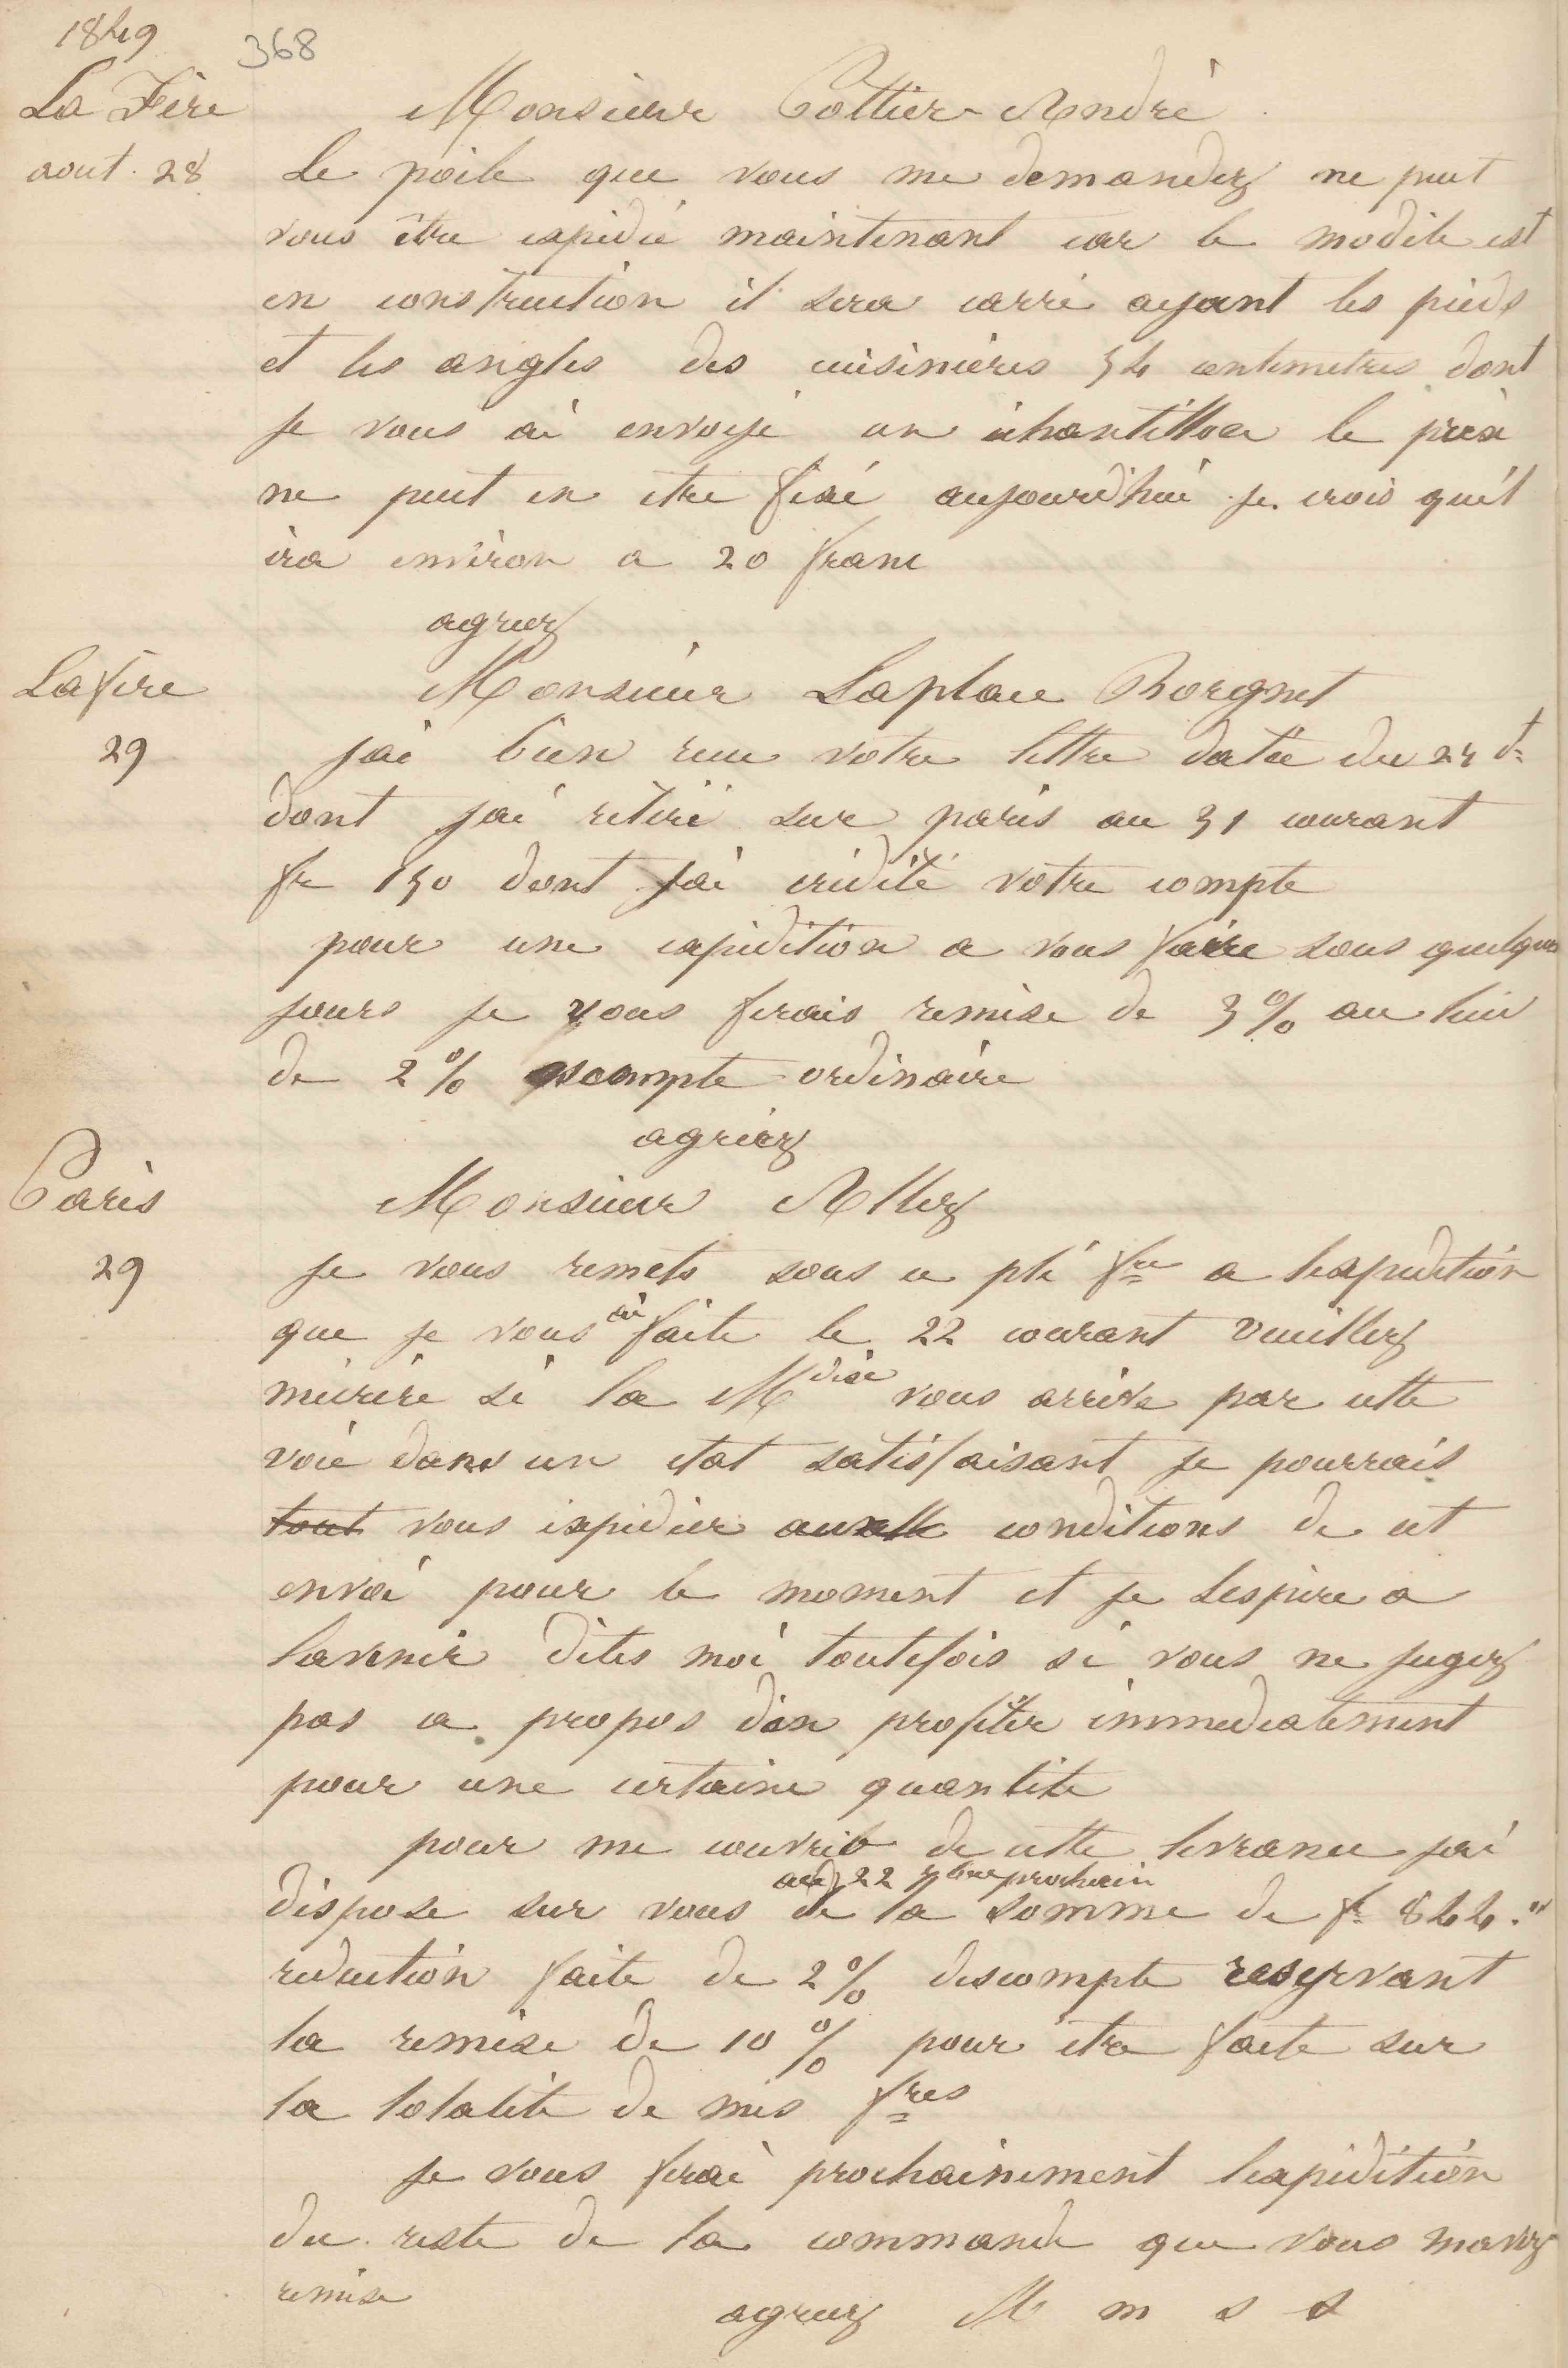 1849
368
La Fère
Monsieur Pottier-André
aout. 28
Le poële que vous me demandez ne peut
vous être expédié maintenant car le modèle est
en construction il sera carré ayant les pieds
et les angles des cuisinières 34 centimetres dont
je vous ai envoyé un échantillon le prix
ne peut en etre fixé aujourd'hui je crois qu'il
ira environ a 20 franc
agreez
La fère
Monsieur Laplace Borgnet
29
jai bien recu votre lettre datée du 24 dt
dont jai retiré sur paris au 31 courant
fr 150 dont jai crédité votre compte
pour une expédition a vous faire sous quelques
jours je vous ferais remise de 3% au lieu
de 2% escompte ordinaire
agréez
Paris
Monsieur Allez
29
je vous remets sous ce pli fre a lexpedition
que je vous ai faite le 22 courant veuillez
mécrire si la Mdise vous arrive par cette
voie dans un etat satisfaisant je pourrais
tout vous expédier conditions de cet
envoi pour le moment et je lespère a
lavenir dites moi toutefois si vous ne jugez
pas a propos den profiter immediatement
pour une certaine quantite
pour me couvrir de cette livrance jai
au 22 7bre prochain
dispose sur vous de la somme de fr 844."
reduction faite de 2% descompte reservant
la remise de 10% pour etre faite sur
la totalité de mes fres
je vous ferai prochainement lexpédition
du reste de la commande que vous mavez
remise
agreez M m s s